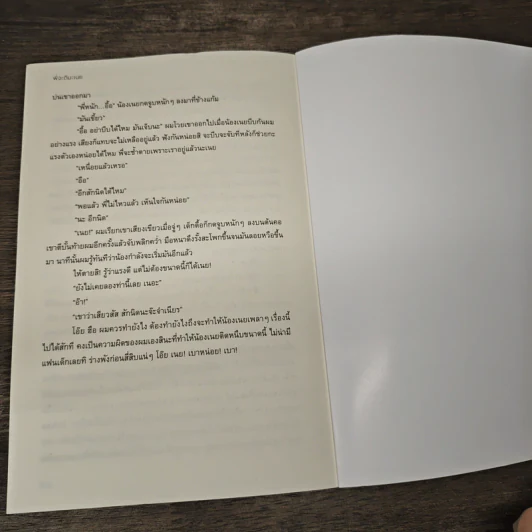 บ่นเขาออกมา
"พี่หนัก...อื้อ" น้องเนยกดจูบหนักๆ ลงมาที่ข้างแก้ม
"มันเขี้ยว"
"อื้อ อย่าบีบได้ไหม มันเจ็บนะ" ผมโวยเขาออกไปเมื่อน้องเนยบีบก้นผม
อย่างแรง เสียงก็แทบจะไม่เหลืออยู่แล้ว ฟังกันหน่อยสิ จะบีบจะจับทีหลังก็ช่วยกะ
แรงตัวเองหน่อยได้ไหม พี่จะช้ำตายเพราะเราอยู่แล้วนะเนย
"เหนื่อยแล้วเหรอ"
"อือ"
"อีกสักนิดได้ไหม"
"พอแล้ว พี่ไม่ไหวแล้ว เห็นใจกันหน่อย"
"นะ อีกนิด"
"เนย!" ผมเรียกเขาเสียงเขียวเมื่อจู่ๆ เด็กดื้อก็กดจูบหนักๆ ลงบนต้นคอ
เขาตีบั้นท้ายผมอีกครั้งแล้วจับพลิกคว่ำ มือหนาดึงรั้งสะโพกขึ้นจนมันลอยหวือขึ้น
มา นาทีนั้นผมรู้ทันทีว่าน้องกำลังจะเริ่มมันอีกแล้ว
ให้ตายสิ! รู้ว่าแรงดี แต่ไม่ต้องขนาดนี้ก็ได้เนย!
"ยังไม่เคยลองท่านี้เลย เนอะ"
"อ๊า!"
"เขาว่าเสียวสัส สักนิดนะจ๊ะจำเนียร"
โอ๊ย สื่อ ผมควรทำยังไง ต้องทำยังไงถึงจะทำให้น้องเนยเพลาๆ เรื่องนี้
ไปได้สักที คงเป็นความผิดของผมเองสินะที่ทำให้น้องเนยติดหนึบขนาดนี้ ไม่น่ามี
แฟนเด็กเลยที ร่างพังก่อนสี่สิบแน่ๆ โอ๊ย เนย! เบาหน่อย! เบา!